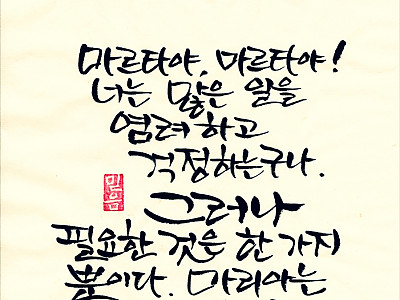 마르타야, 마르타야!
너는 많은 일을
염려하고
걱정하는구나.
믿음
그러나
필요한 것은 한 가지
뿐이다. 마리아는